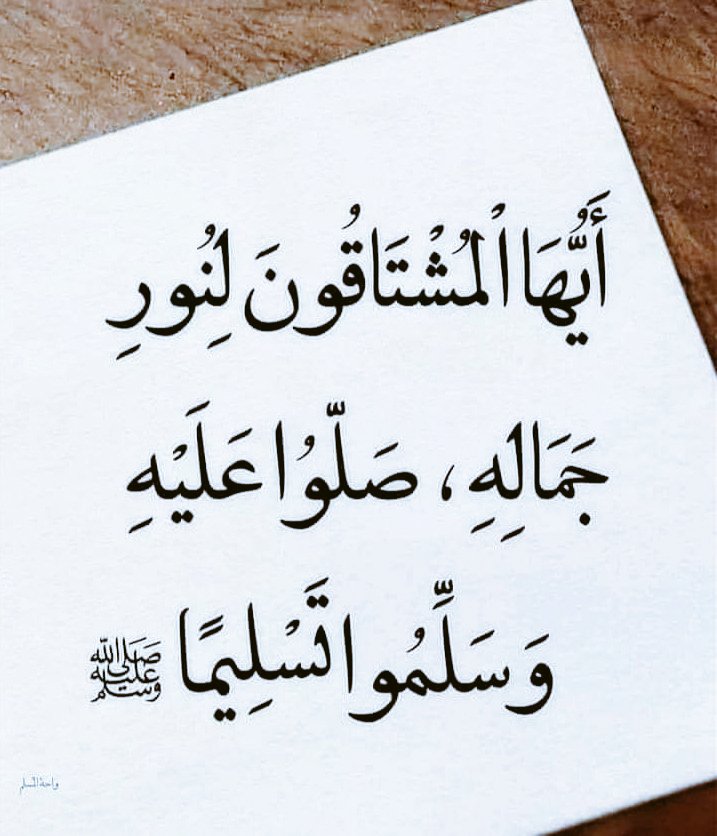 أَيُّهَا ٱلْمُشْتَاقُونَ لِنُورِ
جَمَالِهِ، صَلُّوا عَلَيْهِ
وَسَلِّمُوا تَسْلِيمًا ﷺ